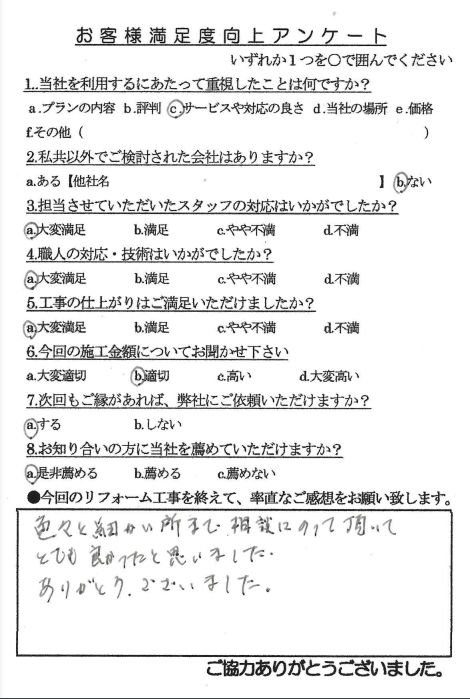 お客様満足度向上アンケート
いずれか１つを〇で囲んでください
1..当社を利用するにあたって重視したことは何ですか？
a.プランの内容 b.評判 c.サービスや対応の良さ d.当社の場所 e.価格
f.その他（ ）
2.私共以外でご検討された会社はありますか？
a.ある【他社名 】 b.ない
3.担当させていただいたスタッフの対応はいかがでしたか？
a.大変満足 b.満足 c.やや不満 d.不満
4.職人の対応・技術はいかがでしたか？
a.大変満足 b.満足 c.やや不満 d.不満
5.工事の仕上がりはご満足いただけましたか？
a.大変満足 b.満足 c.やや不満 d.不満
6.今回の施工金額についてお聞かせ下さい
a.大変適切 b.適切 c.高い d.大変高い
7.次回もご縁があれば、弊社にご依頼いただけますか？
a.する b.しない
8.お知り合いの方に当社を薦めていただけますか？
a.是非薦める b.薦める c.薦めない
●今回のリフォーム工事を終えて、率直なご感想をお願い致します。
色々と細かい所まで相談にのって頂いて
とても良かったと思いました.
ありがとうございました。
ご協力ありがとうございました。